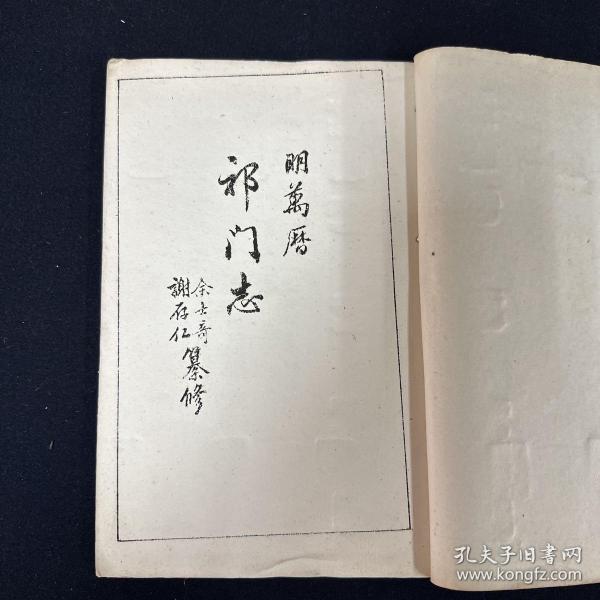 明萬曆
祁门志
余士奇
謝存仁
纂修
孔夫子旧書网
www.kongfz.com